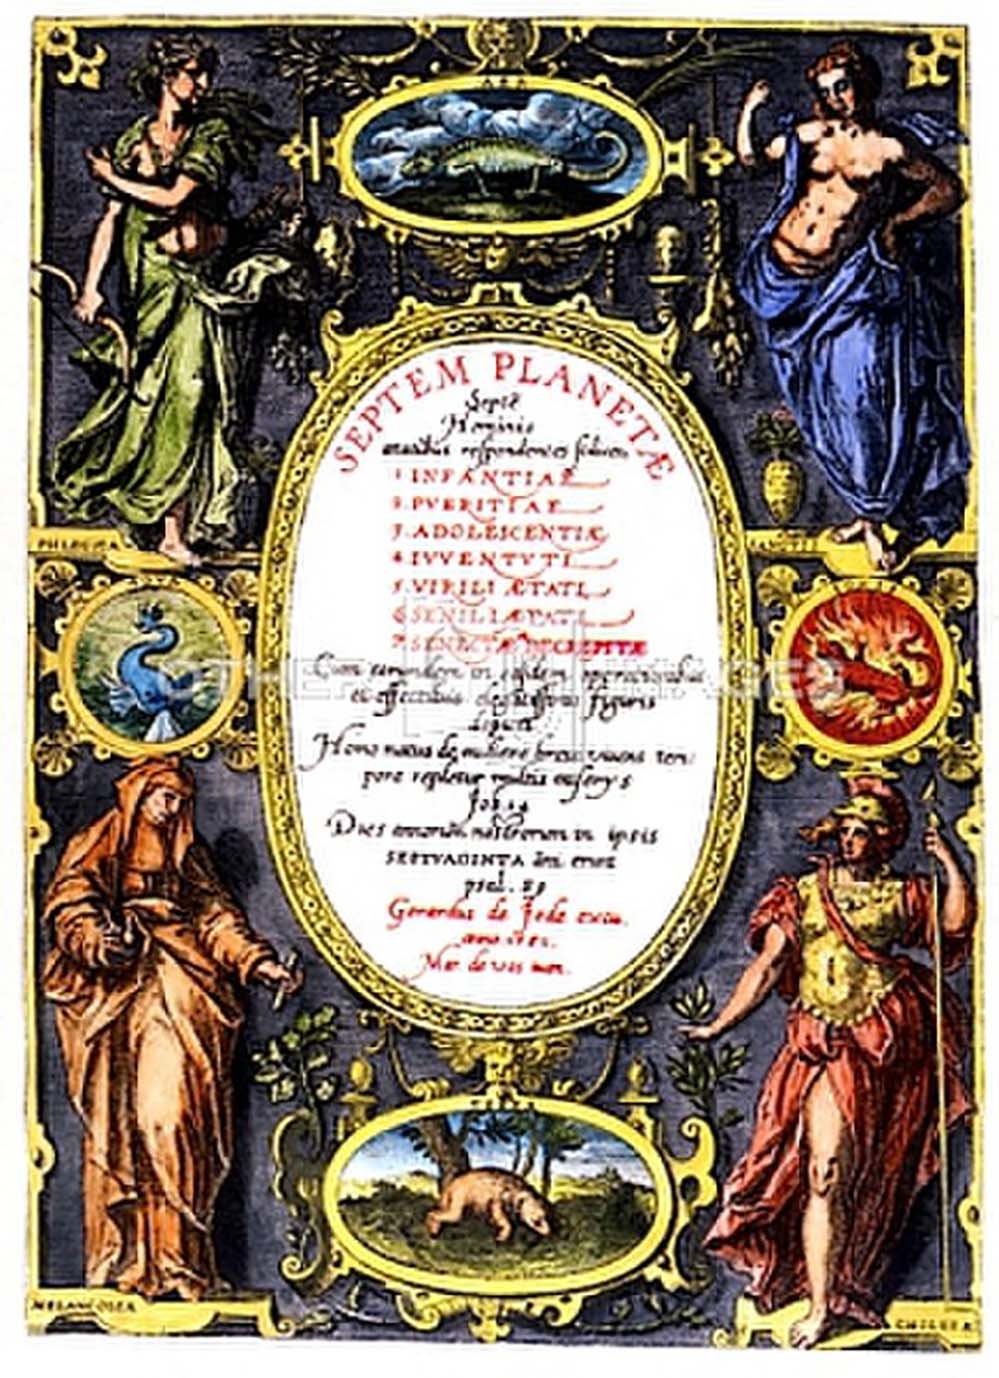 SEPTEM PLANETÆ
Septē
Hominis
ætatibus respondentes
1 INFANTIAE
2. PVERITIAE
3. ADOLESCENTIÆ
4 IVVENTVTI
5. VIRILI ÆTATI
6 SENILI ÆTATI
7. SENECTÆ DECREPITÆ
Cum earundem in eisdem operationibus
et effectibus elegantissimis figuris
Homo natus de muliere brevi vivens tem
pore repletur multis
Job. 14
Dies annorum nostrorum in ipsis
SEPTVAGINTA
psal. 89
Gerardus de Jode
PHLEGMA
MELANCOLIA
CHOLERA